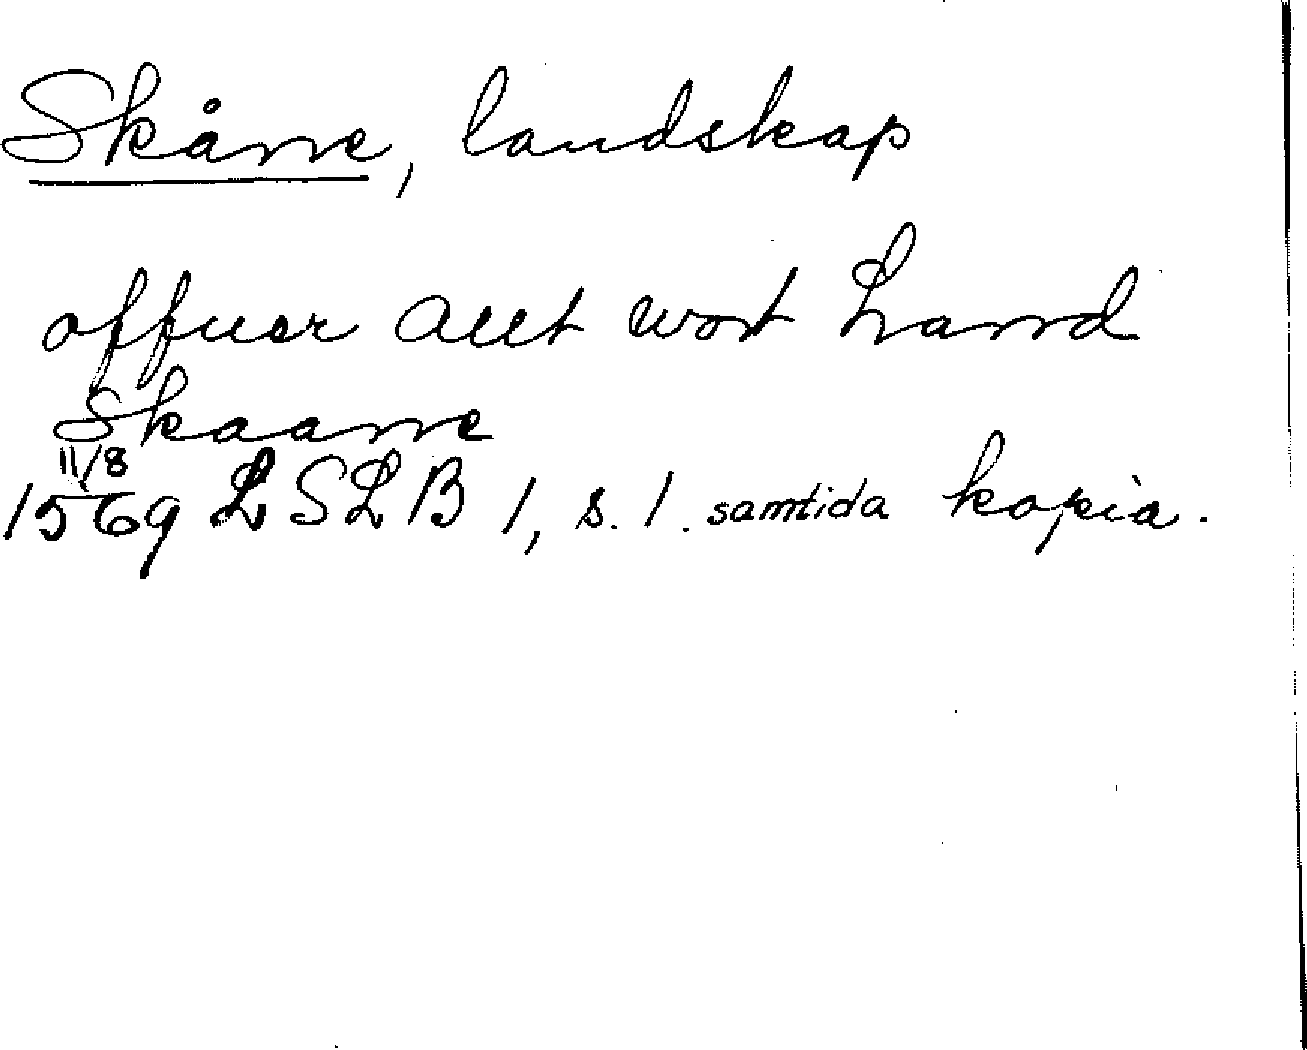 Skåne, landskap
offuer allt wort Lannd
Skaane
11/8
1569 LSLB 1, s. 1. samtida kopia.